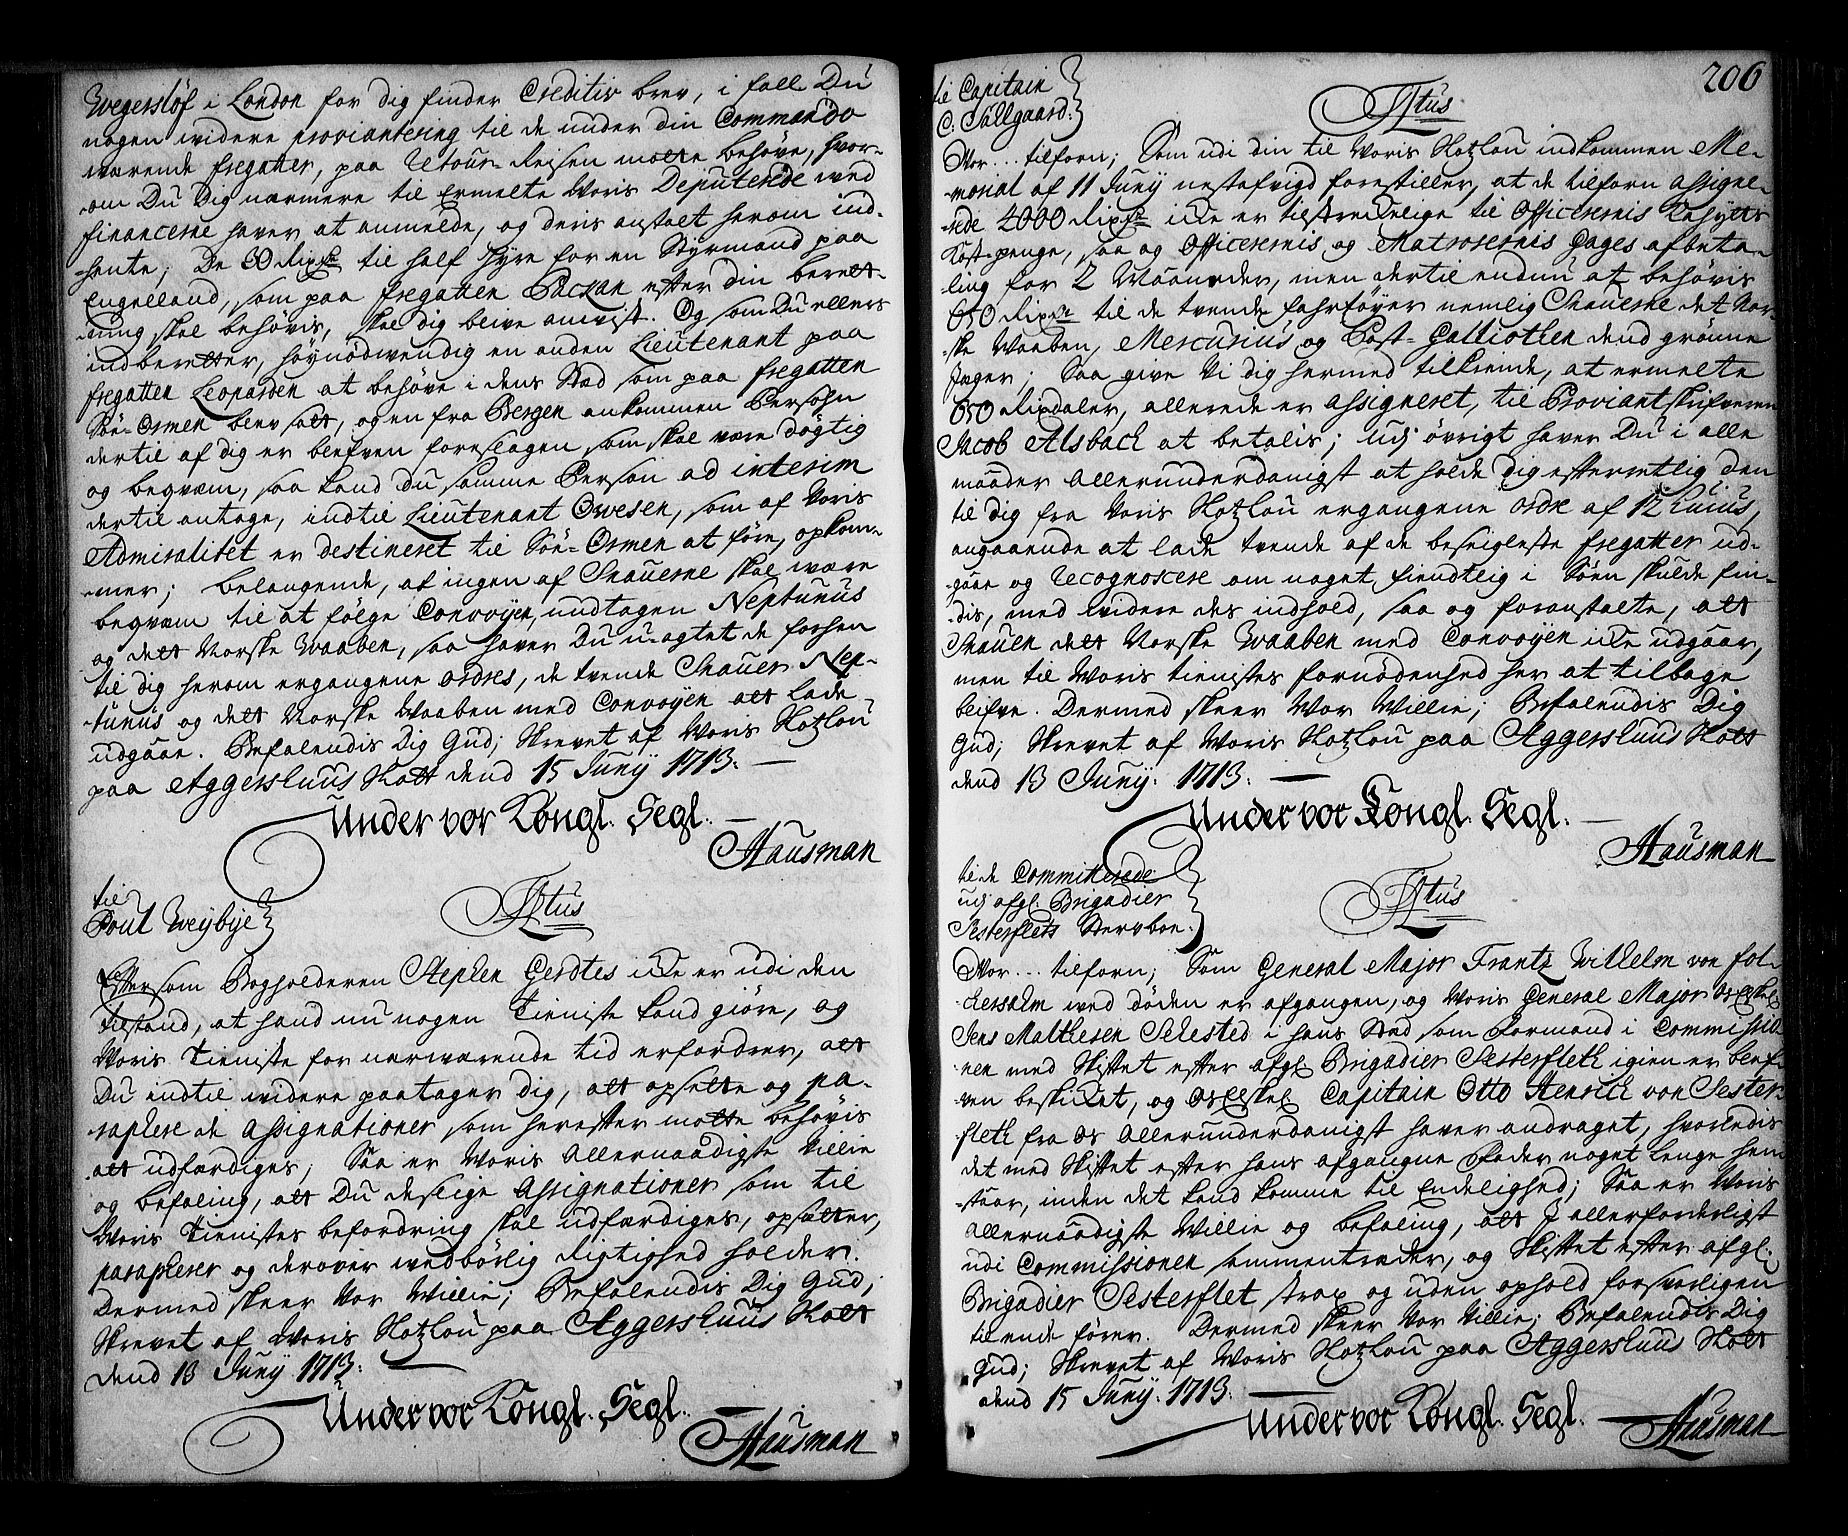 Wegersløf i London for dig finder Creditiv brev, i fall Du
nogen widere proviantering til de under din Commando
wærende fregatter, paa Retour-Reisen motte behøve, hvor-
-om Du Dig nærmere til Ermelte Woris Deputerede wed
financerne haver at anmelde, og deris anstalt herom ind-
-hente; De 60 Rixdr til half Hyre for en Styrmand paa
Engelland, som paa fregatten Packan efter din beret-
-ning skal behøvis, skal dig blive anvist. Og som Du ellers
indberetter, høynødwendig en anden Lieutenant paa
fregatten Leoparden at behøve i dens Stæd som paa fregatten
Søe-Ormen blev satt, og en fra Bergen ankommen Persohn
dertil af dig er blefven foreslagen, som skal være dygtig
og begvæm, saa kand Du samme Person ad interim
dertil antage, indtil Lieutenant Owesen, som af Voris
Admiralitet er destineret til Søe-Ormen at føre, opkom-
-mer; belangende, at ingen af Snauerne skal wære
begvæm til at følge Convoyen, undtagen Neptunus
og dett Norske Waaben, saa haver Du u-agtet de forhen
til dig herom ergangene ordres, de tvende Snauer Nep-
-tunus og dett Norske Waaben med Convoyen att lade
udgaae. Befalendis Dig Gud; Skrevet af Woris Slotzlou
paa Aggershuus Slott dend 15 Juny 1713.
Under vor Kongl. Segl.
Hausman
til
Poul Weybye
Titus
Eftersom Bogholderen Stephen Gerdtes icke er udi den
tilstand, at hand nu nogen Tieniste kand giøre, og
Woris Tieniste for nærwærende tid erfordrer, att
Du indtil widere paatager dig, att opsette og pa-
raphere de Assignationer som herefter motte behøvis
att udfærdiges; Saa er Woris Allernaadigste Villie
og befaling, att Du deslige Assignationer som til
Woris Tienistes befordring skal udfærdiges, opsætter,
parapherer og derover wedbørlig Rigtighed holder.
Dermed skeer Vor Willie; Befalendis Dig Gud;
Skrevet af Woris Slotzlou paa Aggershuus Slott
dend 13 Juny 1713.
Under vor Kongl. Segl.
Hausman
206
til Capitain
C. Tüllgaard.
Titus
Vor... tilforn; Som udi din til Voris Slotzlou indkommen Me-
-morial af 11 Juny nestafvigd forestiller, at de tilforn assigne-
-rede 4000 Rixdr icke er tilstreckelige til Officerernis
Kost-penge, saa og Officerernis og Matrosernis Gages afbeta-
ling for 2 Maaneder, men dertil endnu at behøvis
650 Rixdr til de tvende fahrtøyer nemlig Snauerne det Nor-
-ske Waaben, Mercurius og Post-Galliotten dend grønne
Jæger; Saa give Vi dig hermed tilkiende, at ermelte
650 Rixdaler, allerede er assigneret, til Proviantskrifveren
Jacob Alsback at betalis; udj øvrigt haver Du i alle
maader Allerunderdanigst at holde Dig efterretlig den
til dig fra Voris Slotzlou ergangene ordre af 12 huius,
angaaende at lade tvende af de beseigleste fregatter ud-
-gaae og Recognoscere om noget fiendtlig i Søen skulde fin-
-dis, med widere des indhold, saa og foranstalte, att
Snauen dett Norske Waaben med Convoyen icke udgaar,
men til Woris tienistes fornødenhed her at tilbage
blifve. Dermed skeer Vor Willie; Befalendis Dig
Gud; Skrevet af Woris Slotzlou paa Aggershuus Slott
dend 13 Juny. 1713.
Under vor Kongl. Segl.
Hausman
til de Committerede
udj afgl. Brigadier
Sesterflets Stervboe.
Titus
Vor... tilforn; Som General Major Frantz Wilhelm von fol-
-kersalm wed døden er afgangen, og Woris General Major Os Elskel.
Jens Matthesen Sehested i hans Stæd som formand i Commissio-
-nen med Skiftet efter afgl Brigadier Sesterfleth igien er blef-
ven beskicket, og Os Elskel Capitain Otto Henrich von Sester-
fleth fra Os Allerunderdanigst haver andraget, hvorledis
det med Skiftet efter hans afgangne Fader noget lenge hen-
-staar, inden det kand komme til Endelighed; Saa er Woris
Allernaadigste Willie og befaling, att I allerforderligst
udi Commissionen sammentræder, og Skiftet efter afgl.
Brigadier Sesterflet strax og uden ophold forsvarligen
til ende fører. Dermed skeer Vor Villie; Befalendis Dig
Gud; Skrevet af Woris Slotzlou paa Aggershuus Slott
dend 15 Juny. 1713.
Under vor Kongl. Segl.
Hausman